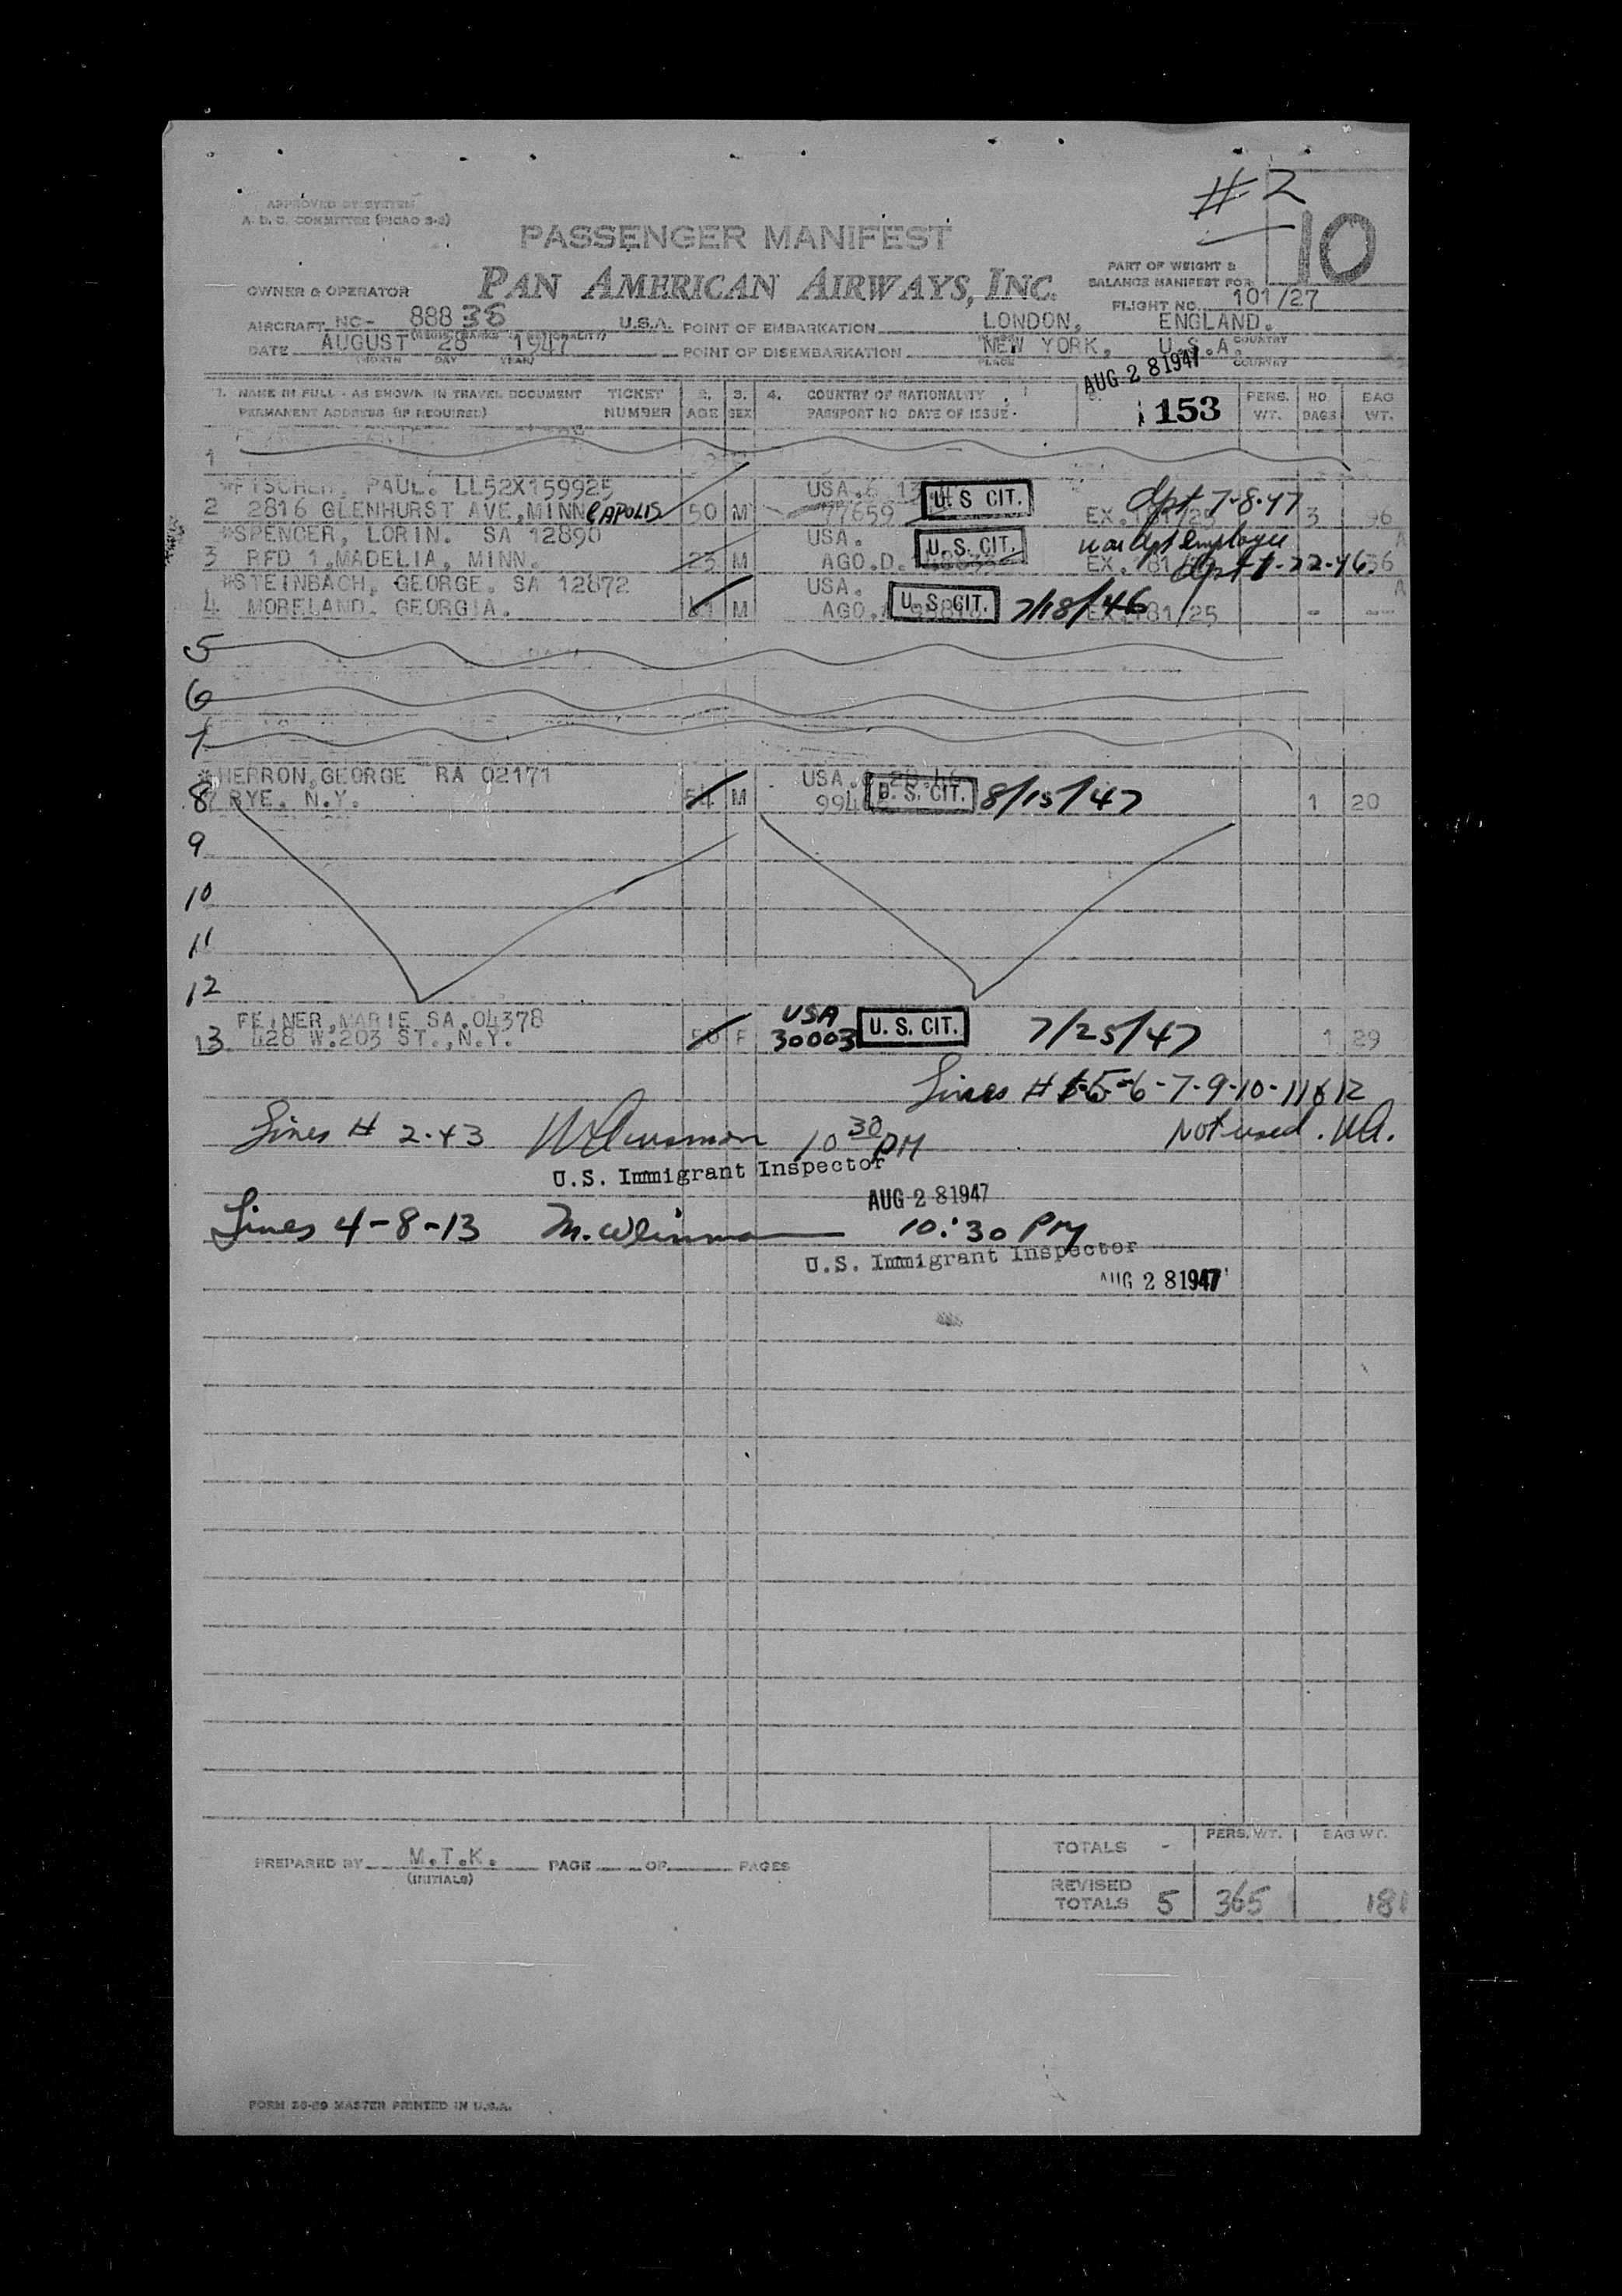 #2
10
APPROVED BY SYSTEM
A. D. C. COMMITTEE (PICAO 3-2)
PASSENGER MANIFEST
PAN AMERICAN AIRWAYS, INC.
PART OF WEIGHT &
BALANCE MANIFEST FOR
FLIGHT NO. 101/27
OWNER & OPERATOR
AIRCRAFT NC- 88838 U.S.A. POINT OF EMBARKATION LONDON, ENGLAND.
DATE AUGUST 28 1947 POINT OF DISEMBARKATION NEW YORK, U.S.A. COUNTRY
(MONTH DAY YEAR) PLACE COUNTRY
AUG 28 1947
1. NAME IN FULL - AS SHOWN IN TRAVEL DOCUMENT TICKET 2. 3. 4. COUNTRY OF NATIONALITY PERS. NO. BAG
PERMANENT ADDRESS (IF REQUIRED) NUMBER AGE SEX PASSPORT NO DATE OF ISSUE 153 WT. BAGS WT.
1
*FISCHER, PAUL. LL52X159925 USA. U.S CIT. Dpt 7-8-47
2 2816 GLENHURST AVE, MINNEAPOLIS 50 M 77659 EX.181/25 3 96
*SPENCER, LORIN. SA 12890 USA. U.S. CIT. War Dpt employee A
3 RFD 1, MADELIA, MINN. 23 M AGO.D. EX.181 Dpt 1-22-46 36
*STEINBACH, GEORGE. SA 12872 USA. A
4 MORELAND, GEORGIA. 41 M AGO. U.S. CIT. 7/18/46 EX.181/25 - --
5
6
7
*HERRON, GEORGE RA 02171 USA.
8 RYE. N.Y. 54 M 994 U.S. CIT. 8/15/47 1 20
9
10
11
12
FEINER, MARIE SA.04378 USA
13 428 W.203 ST., N.Y. 50 F 30003 U. S. CIT. 7/25/47 1 29
Lines # 1-5-6-7-9-10-11&12
Lines # 2-&3 10 30 PM Not used.
U.S. Immigrant Inspector
AUG 28 1947
Lines 4-8-13 10:30 PM
U.S. Immigrant Inspector
AUG 28 1947
PERS. WT. BAG WT.
TOTALS -
PREPARED BY M.T.K. PAGE OF PAGES
(INITIALS)
REVISED
TOTALS 5 365 181
FORM 20-89 MASTER PRINTED IN U.S.A.